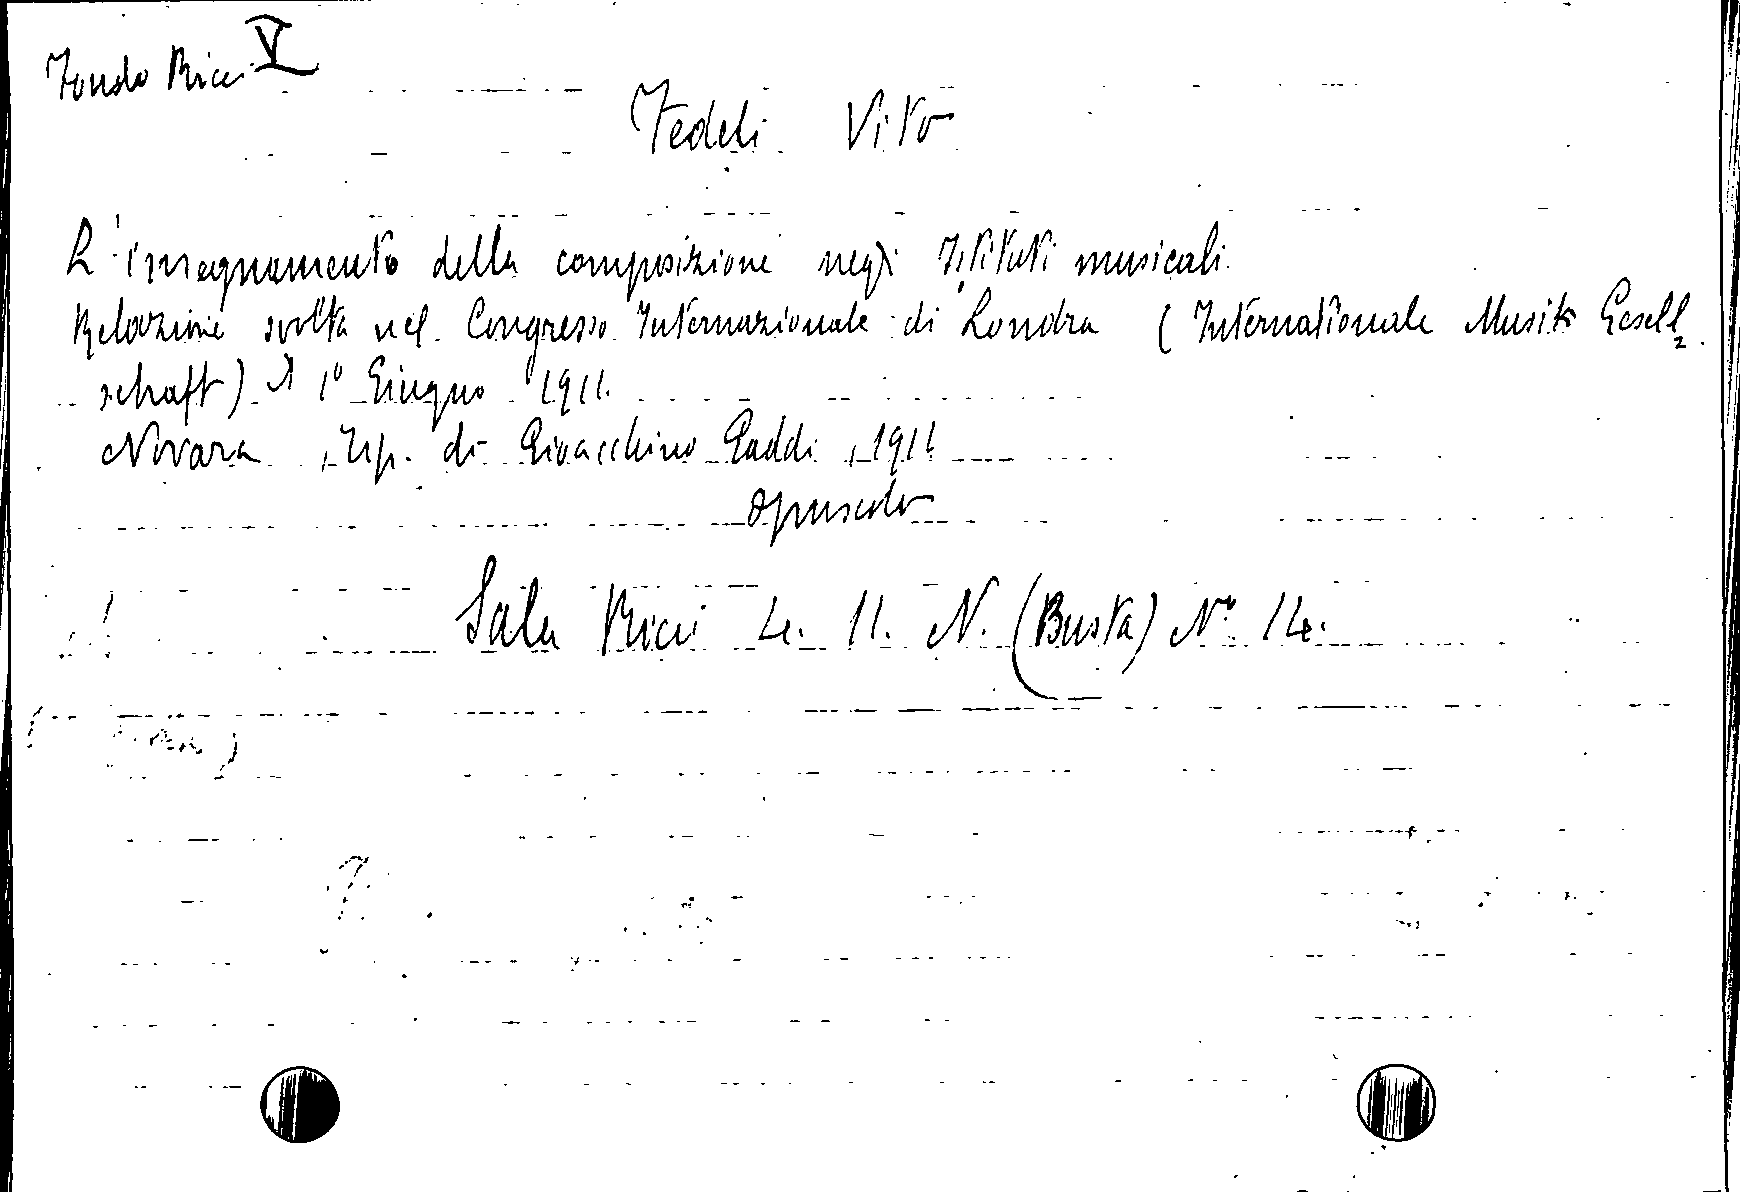 Fondo Ricci V
Fedeli Vito
L'insegnamento della composizione negli Istituti musicali.
Relazione svolta nel Congresso Internazionale di Londra (Internationale Musik Gesell=
schaft) il 1° Giugno 1911.
Novara, Tip. di Gioacchino Gaddi, 1911
opuscolo
Sala Ricci 4. 11. N. (Busta) N° 14.